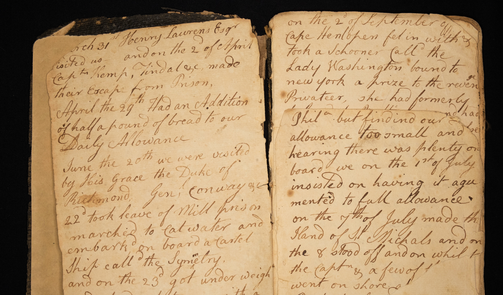 arch 31 Henry Lawrens Esqr
visited us and on the 2 of April
Capt Kemp, made
their Escape from Prison,
April the 29th Had an Addition
of half a pound of bread to our
Daily Allowance
June the 20th we were visited
by his Grace the Duke of
Richmond Genl Conway &c
22d took leave of Mill prison
marched to Catwater and
embark'd on board a Cartel
Ship call'd the Symetry.
and on the 23d got under weigh
on the 2 of September
Cape Henlopen fel in with
took a Schooner call'd the
Lady Washington bound to
new york a prize to the
Privateer, she had formerly
but finding our
allowance too small and
hearing there was plenty on
board we on the 1st of July
insisted on having it agu
mented to full allowance
on the 7th of July made the
Iland of St Michals and on
the 8 stood off and on whilst
the Capt & a few of
went on shore